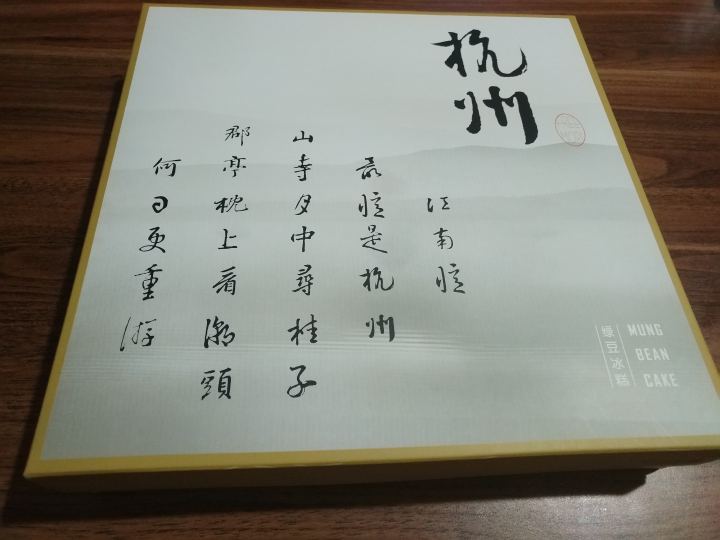 杭州
江南憶
最憶是杭州
山寺月中尋桂子
郡亭枕上看潮頭
何日更重游
綠豆冰糕
MUNG
BEAN
CAKE